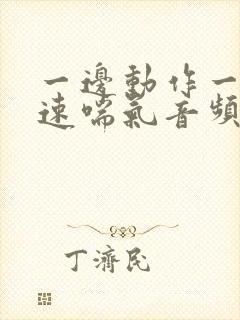 一邊動作一
速喘氣音頻
丁濟民